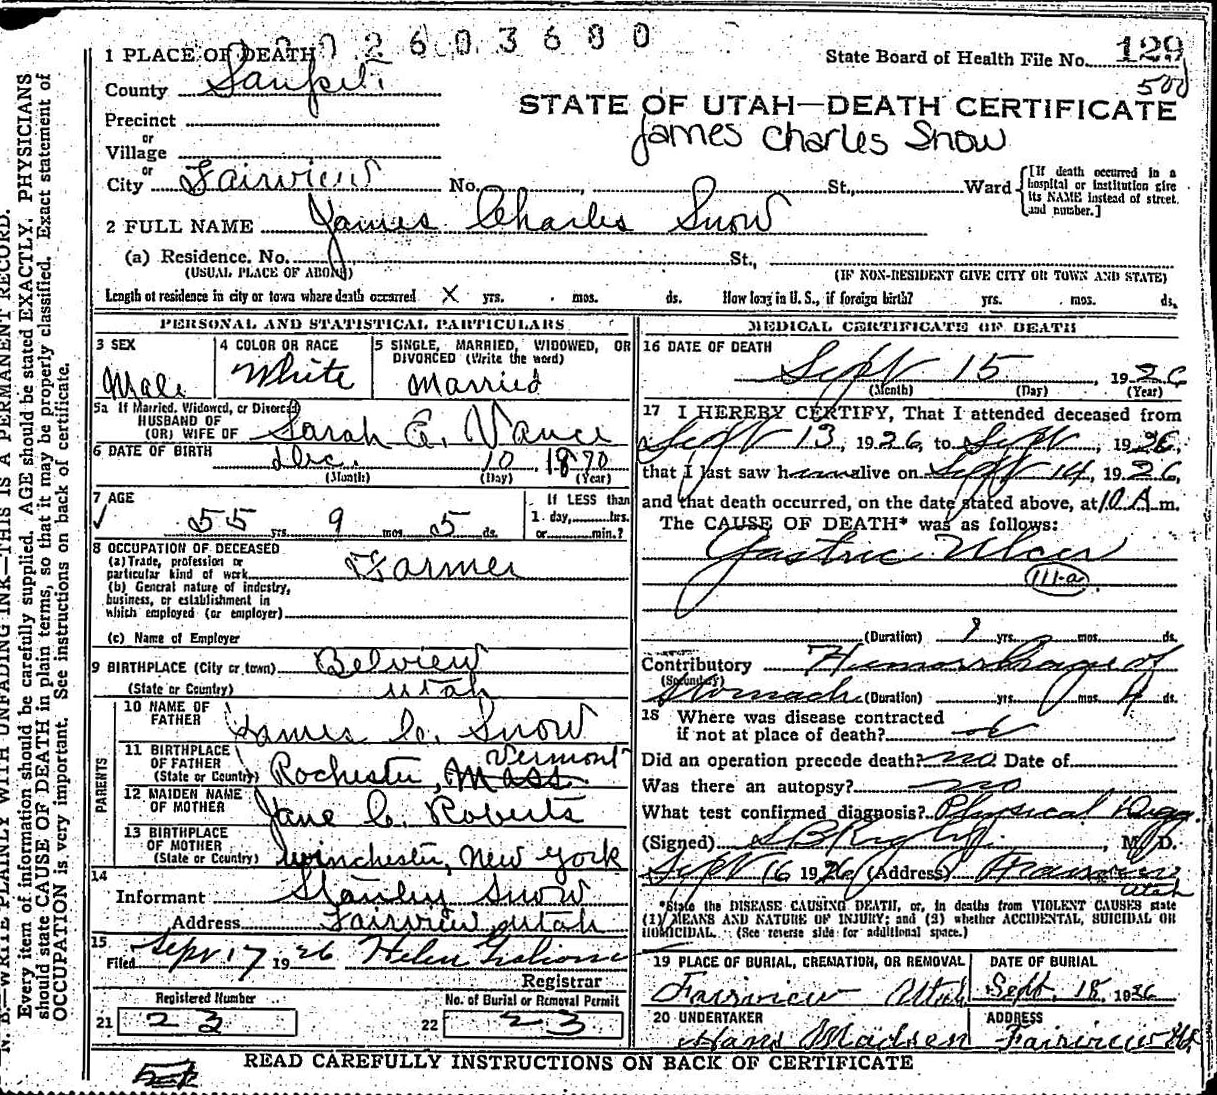 2603600
1 PLACE OF DEATH
State Board of Health File No. 129
500
County Sanpete
STATE OF UTAH—DEATH CERTIFICATE
James Charles Snow
Precinct
or
Village
or
City Fairview No. , St., Ward
[If death occurred in a
hospital or institution give
its NAME instead of street
and number.]
2 FULL NAME James Charles Snow
(a) Residence. No. St.,
(USUAL PLACE OF ABODE) (IF NON-RESIDENT GIVE CITY OR TOWN AND STATE)
Length of residence in city or town where death occurred X yrs. mos. ds. How long in U. S., if foreign birth? yrs. mos. ds.
PERSONAL AND STATISTICAL PARTICULARS
3 SEX
Male
4 COLOR OR RACE
White
5 SINGLE, MARRIED, WIDOWED, OR
DIVORCED (Write the word)
Married
5a If Married, Widowed, or Divorced
HUSBAND OF
(OR) WIFE OF Sarah E. Vance
6 DATE OF BIRTH Dec. 10, 1870
(Month) (Day) (Year)
7 AGE
55 yrs. 9 mos. 5 ds.
If LESS than
1 day, hrs.
or min.?
8 OCCUPATION OF DECEASED
(a) Trade, profession or
particular kind of work Farmer
(b) General nature of industry,
business, or establishment in
which employed (or employer)
(c) Name of Employer
9 BIRTHPLACE (City or town) Belview
(State or Country) Utah
PARENTS
10 NAME OF
FATHER James C. Snow
11 BIRTHPLACE
OF FATHER
(State or Country) Rochester, Mass. Vermont
12 MAIDEN NAME
OF MOTHER Jane C. Roberts
13 BIRTHPLACE
OF MOTHER
(State or Country) Winchester, New York
14
Informant Stanley Snow
Address Fairview Utah
15
Filed Sept 17 1926 Helen
Registrar
Registered Number
21 23
No. of Burial or Removal Permit
22 23
MEDICAL CERTIFICATE OF DEATH
16 DATE OF DEATH
Sept 15, 1926
(Month) (Day) (Year)
17 I HEREBY CERTIFY, That I attended deceased from
Sept 13, 1926, to Sept, 1926,
that I last saw him alive on Sept 14, 1926,
and that death occurred, on the date stated above, at 10 A.m.
The CAUSE OF DEATH* was as follows:
Gastric Ulcer
111-a
(Duration) yrs. mos. ds.
Contributory Hemorrhage of
(Secondary)
Stomach (Duration) yrs. mos. 4 ds.
18 Where was disease contracted
if not at place of death?
Did an operation precede death? no Date of
Was there an autopsy? no
What test confirmed diagnosis? Physical
(Signed) , M. D.
Sept 16 1926 (Address) Fairview
Utah
*State the DISEASE CAUSING DEATH, or, in deaths from VIOLENT CAUSES state
(1) MEANS AND NATURE OF INJURY; and (2) whether ACCIDENTAL, SUICIDAL OR
HOMICIDAL. (See reverse side for additional space.)
19 PLACE OF BURIAL, CREMATION, OR REMOVAL
Fairview Utah
DATE OF BURIAL
Sept. 18, 1926
20 UNDERTAKER
Hans Madsen
ADDRESS
Fairview Ut
READ CAREFULLY INSTRUCTIONS ON BACK OF CERTIFICATE
N. B.—WRITE PLAINLY WITH UNFADING INK—THIS IS A PERMANENT RECORD.
Every item of information should be carefully supplied. AGE should be stated EXACTLY. PHYSICIANS
should state CAUSE OF DEATH in plain terms, so that it may be properly classified. Exact statement of
OCCUPATION is very important. See instructions on back of certificate.